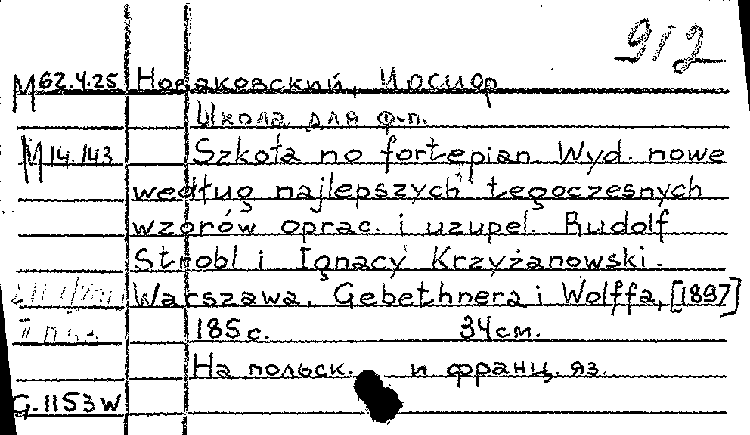 912
М 62.4.25 Новаковский, Иосиф
Школа для ф-п.
М 14.143 Szkoła no fortepian. Wyd. nowe
według najlepszych tegoczesnych
wzorów oprac. i uzupeł. Rudolf
Strobl i Ignacy Krzyżanowski.
Warszawa, Gebethnera i Wolffa, [1897]
185 с. 34 см.
На польск. и франц. яз.
G.1153 W